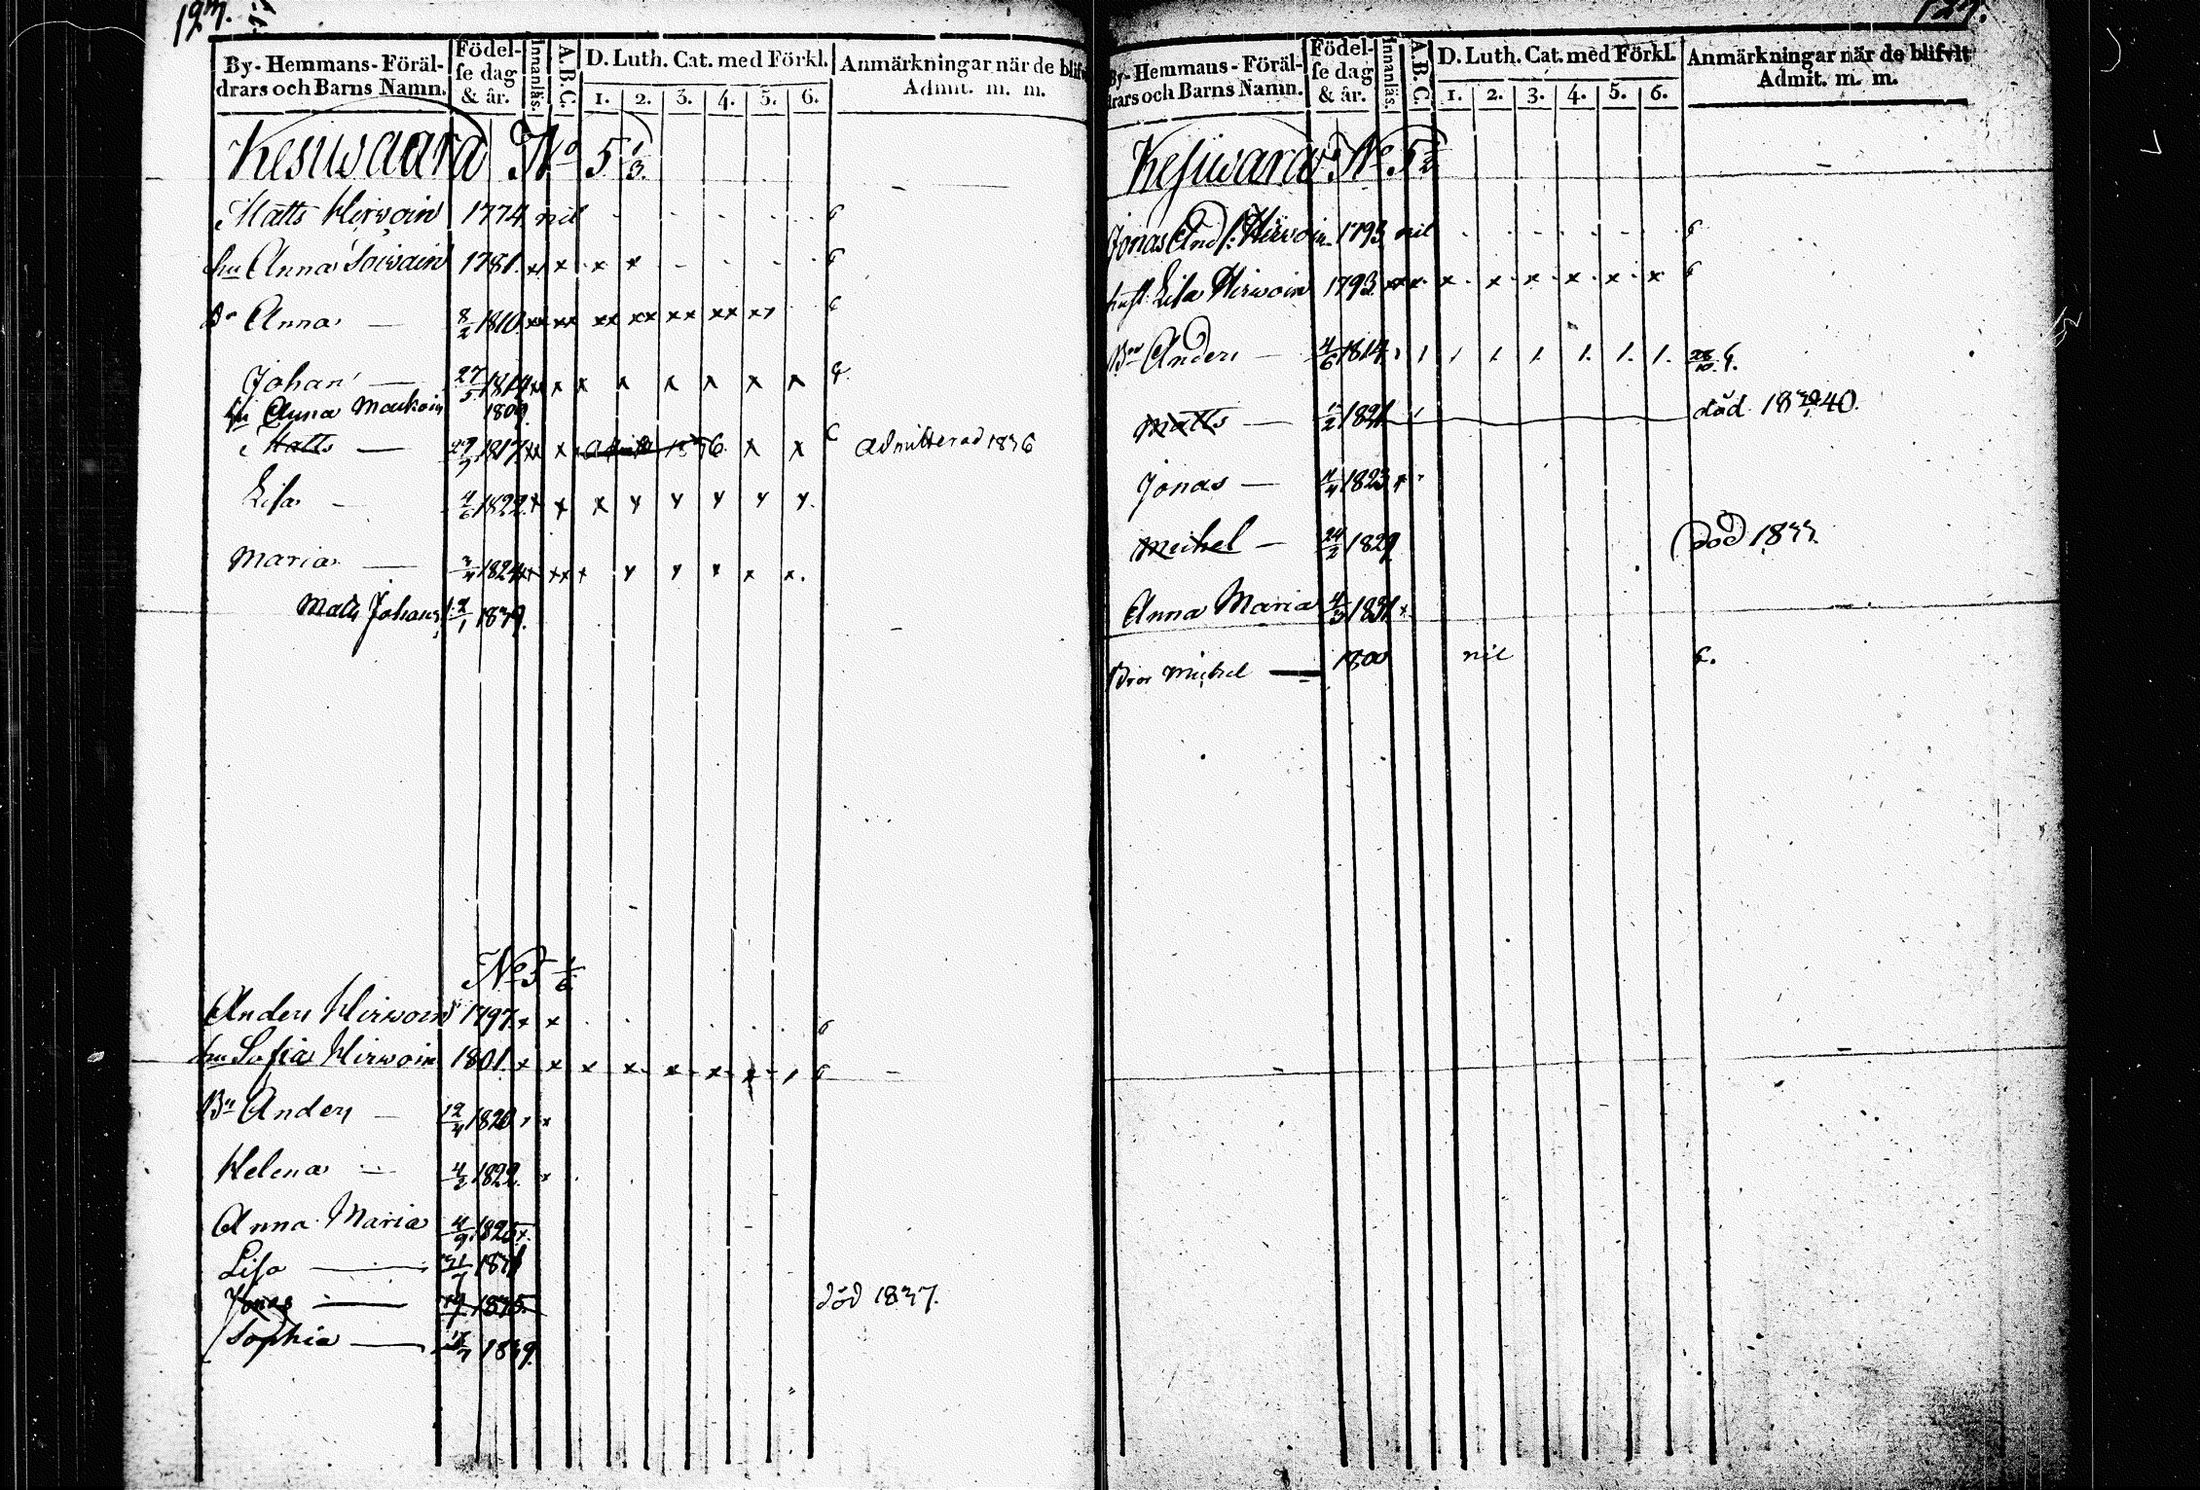 By-Hemmans-Föräl-
drars och Barns Namn.
Födel-
se dag
& år.
Innanläs.
A.B.C.
D. Luth. Cat. med Förkl.
1. 2. 3. 4. 5. 6.
Anmärkningar när de blifv
Admit. m. m.
Kesiwaara No 5 1/3.
Matts Hirwoin 1774. nil
hu Anna Soiwain 1781. x x x x
Bn Anna — 8/2 1810. xx xx xx xx xx xx xx
Johan — 27/5 1814 xx x x x x x x x
hu Anna 1809.
Matts — 27/7 1817. xx x x x x Admitterad 1836
Lisa — 4/6 1822. x x x x x x x x
Maria — 3/4 1824 xx xx x x x x x x.
Matts Johans: 2/1 1839.
No 5 1/6
Anders Hirwoin 1797. x x
hu Sofia Hirwoin 1801. x x x x x x x
Bn Anders — 12/4 1820
Helena — 4/2 1822.
Anna Maria 4/9 1825. x.
Lisa — 21/7 1831
Jonas — 19/7 1835. död 1837.
Sophia — 1839.
By-Hemmans-Föräl-
drars och Barns Namn.
Födel-
se dag
& år.
Innanläs.
A.B.C.
D. Luth. Cat. med Förkl.
1. 2. 3. 4. 5. 6.
Anmärkningar när de blifvit
Admit. m. m.
Kesiwaara No 5 1/2
Jonas And: Hirwoin 1793. nil
hust. Lisa Hirwoin 1793. xx x x x x x x x
Bn Anders — 4/6 1814. 1 1 1 1 1. 1. 1. 1.
Matts — 1/2 1821. död 1840.
Jonas — 1823
Meihel — 24/2 1829 död 1833.
Anna Maria 4/3 1831 x
Bror Michel — 1800 nil